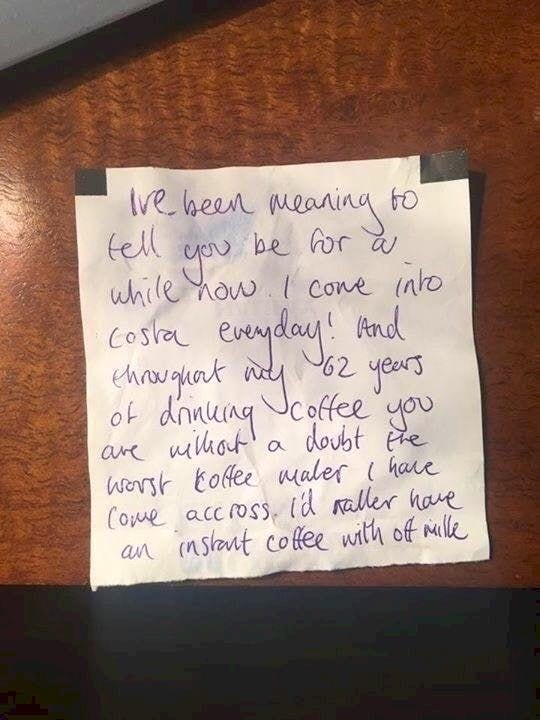 Ive been meaning to
tell you be for a
while now. I come into
Costa everyday! And
throughout my 62 years
of drinking coffee you
are without a doubt the
worst koffee maker I have
come accross. I'd raller have
an instant coffee with off milk